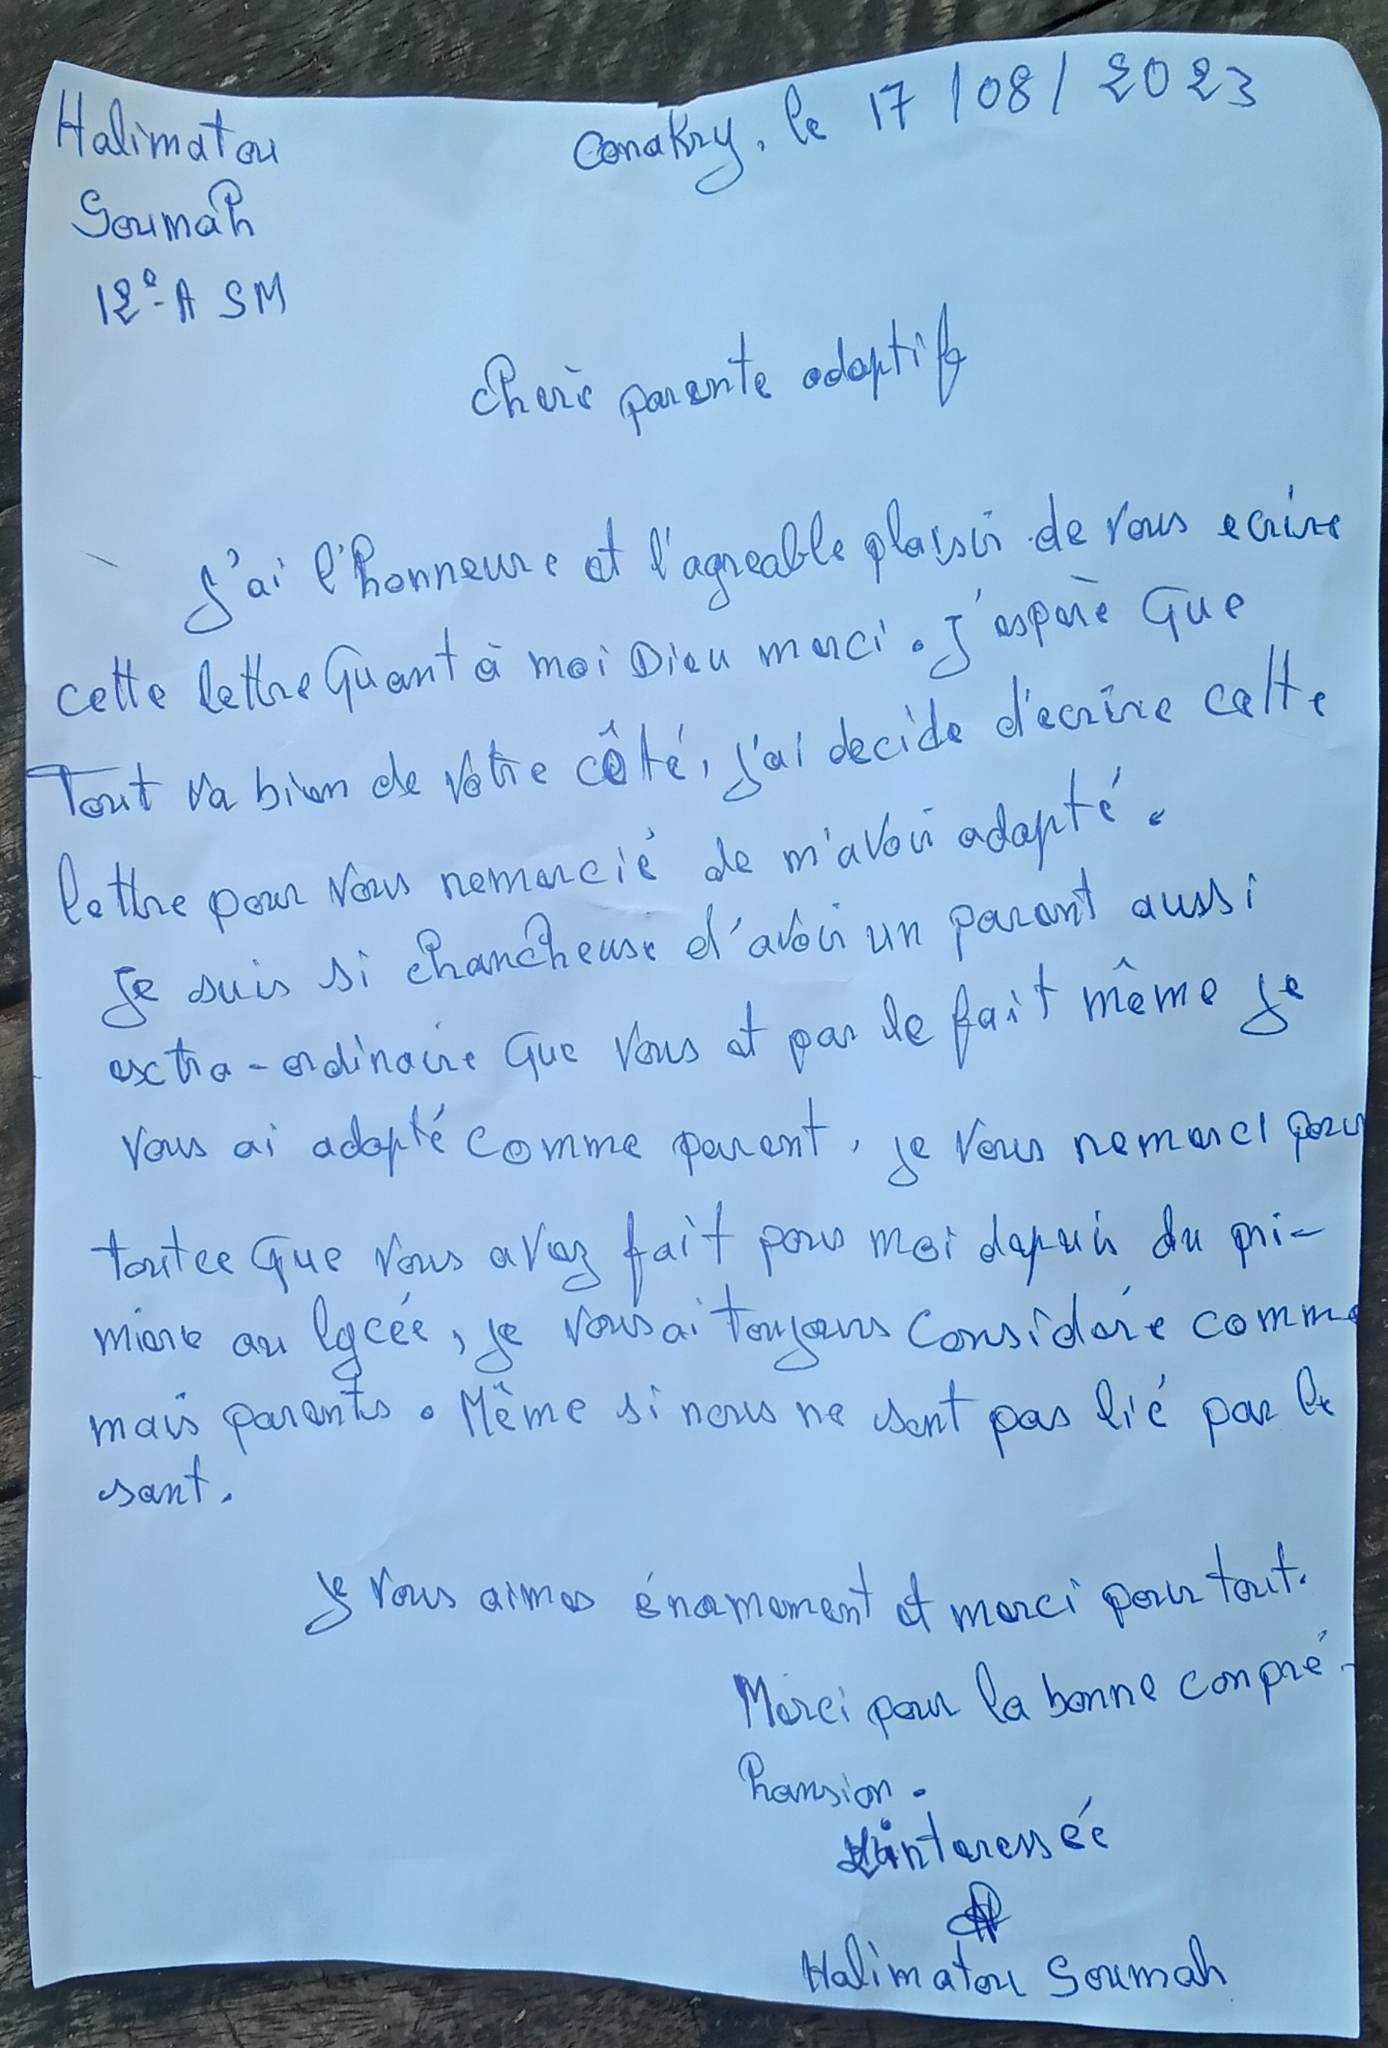 Halimatou
Conakry, le 17/08/2023
Soumah
12e-A SM
cherè parente adoptife
J'ai l'honneure et l'agreable plaisir de vous ecrire
cette lettre Quant à moi Dieu merci. J'espère Que
Tout va bien de votre côté, j'ai decide d'ecrire cette
lettre pour vous remercié de m'avoir adopté.
Je suis si chancheuse d'avoir un parent aussi
extra-ordinaire Que vous et par le fait même je
vous ai adopté comme parent, je vous remerci pour
toutce Que vous avez fait pour moi depuis du pri-
miere au lycée, je vous ai toujours considére comme
mais parents. Même si nous ne sont pas lié par le
sant.
Je vous aimes énamement et merci pour tout.
Merci pour la bonne conpré-
hension.
L'interessée
Halimatou Soumah